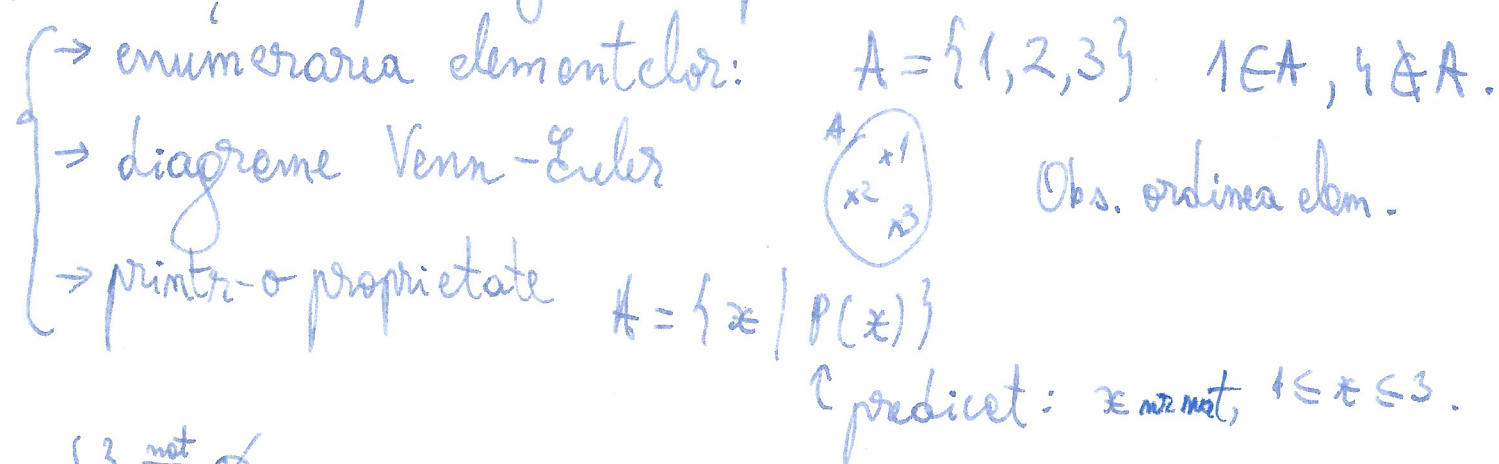 → enumerarea elementelor: A = {1, 2, 3} 1 ∈ A, 4 ∉ A.
→ diagrame Venn-Euler A x1 x2 x3 Obs. ordinea elem.
→ printr-o proprietate A = {x | P(x)}
↑ predicat: x nr nat, 1 ≤ x ≤ 3.
{ } not ∅